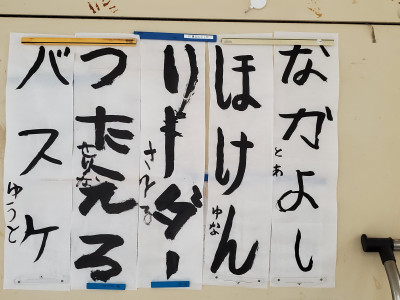 なかよし
とあ
ほけん
ゆな
リーダー
つたえる
せな
バスケ
ゆうと